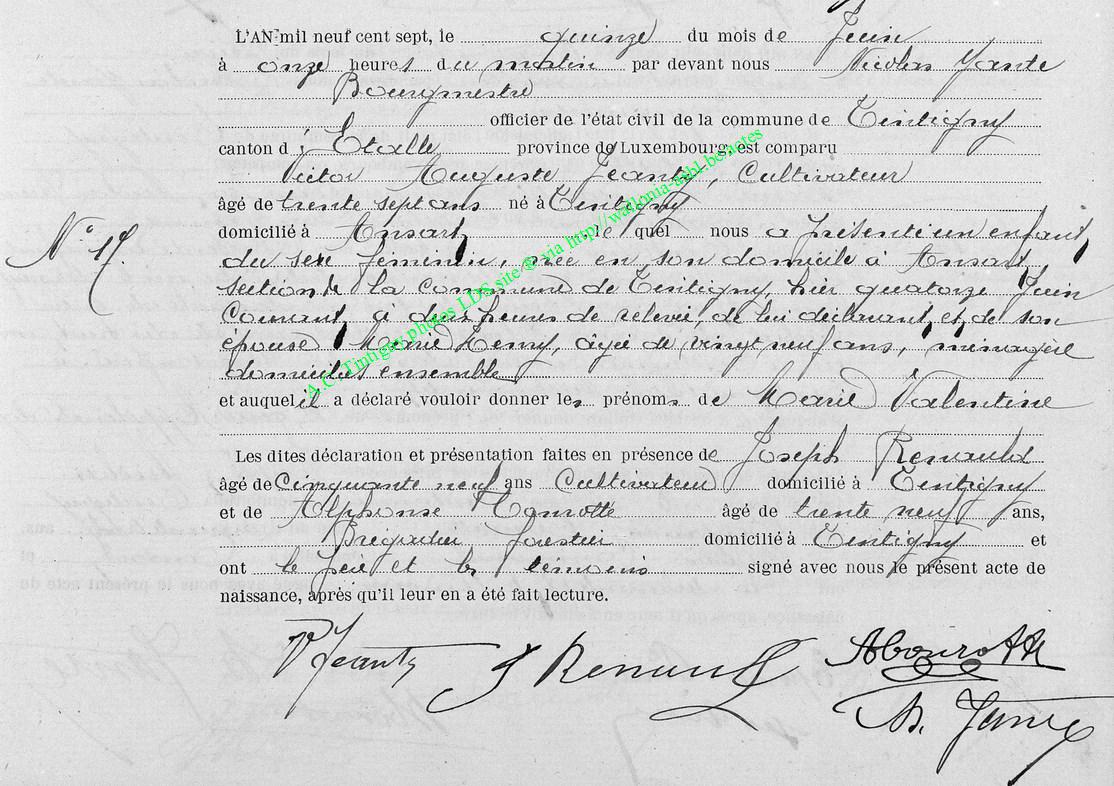 L'AN mil neuf cent sept, le quinze du mois de Juin
à onze heures du matin par devant nous Nicolas Jante
Bourgmestre
officier de l'état civil de la commune de Tintigny
canton d' Etalle province de Luxembourg, est comparu
Victor Auguste Jeanty, Cultivateur
âgé de trente sept ans né à Tintigny
domicilié à Ansart, le quel nous a présenté un enfant
N° 17.
du sexe féminin, née en son domicile à Ansart,
section de la commune de Tintigny, hier quatorze Juin
Courant, à deux heures de relevée, de lui déclarant et de son
épouse Marie Remy, âgée de vingt neuf ans, ménagère
domiciliés ensemble
et auquel il a déclaré vouloir donner les prénoms de Marie Valentine
Les dites déclaration et présentation faites en présence de Joseph Renauld
âgé de Cinquante neuf ans Cultivateur domicilié à Tintigny
et de Alphonse âgé de trente neuf ans,
Brigadier forestier domicilié à Tintigny et
ont le père et les témoins signé avec nous le présent acte de
naissance, après qu'il leur en a été fait lecture.
V Jeanty J Renauld
N. Jante
A.C. Tintigny photos LDS site © via http://wallonia-asbl.be/actes